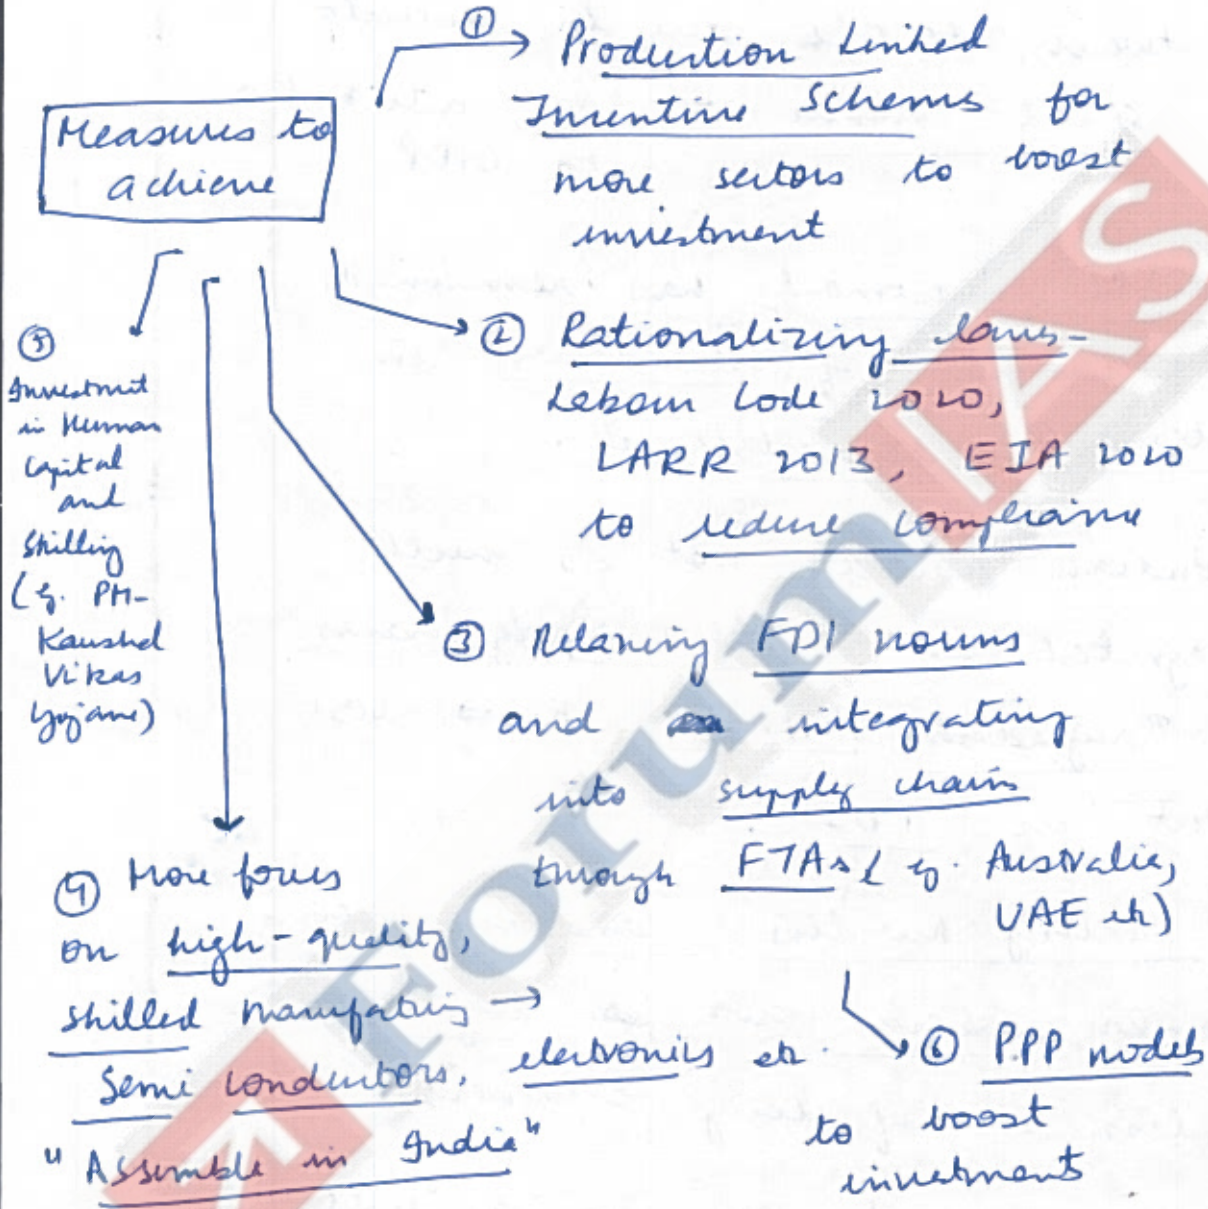 Measures to
achieve
① → Production Linked
Incentive Schemes for
more sectors to boost
investment
② Rationalizing laws -
Labour Code 2020,
LARR 2013, EIA 2020
to reduce compliance
③ Relaxing FDI norms
and integrating
into supply chains
through FTAs (eg. Australia,
UAE etc)
④ More focus
on high-quality,
skilled manufacturing →
Semi conductors, electronics etc.
"Assemble in India"
⑤
Investment
in Human
Capital
and
Skilling
(eg. PM-
Kaushal
Vikas
Yojana)
⑥ PPP models
to boost
investment
Forum IAS